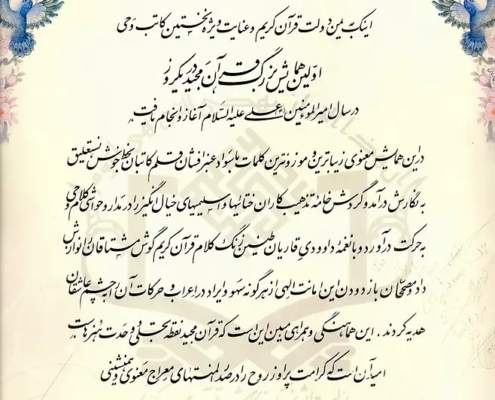 اینک به یمن دولت قرآن کریم و عنایت ویژه نخستین کاتب وحی
اولین همایش بزرگ قرآن مجید در یک روز
در سال امیرالمومنین علی علیه السلام آغاز و انجام یافت
در این همایش معنوی زیباترین و موزونترین کلمات با سواد عنبرافشان قلم کاتبان بخط خوش نستعلیق
به نگارش درآمد و گردش خامه تذهیب کاران ختائیها و اسلیمیهای خیال انگیز را در مدار و حواشی کلام وحی
به حرکت درآورد و با نغمه داوودی قاریان طنین آهنگ کلام قرآن کریم گوش مشتاقان را نوازش
داد مصححان با زدودن این امانت الهی از هرگونه سهو و ایراد در اعراب و حرکات آن را به چشم عاشقان
هدیه کردند. این هماهنگی و همراهی مبین این است که قرآن مجید نقطه تجلی وحدت هنرهاست
امید آن است که کرامت پرواز روح را در سدرة المنتهای معراج معنوی و همنشینی